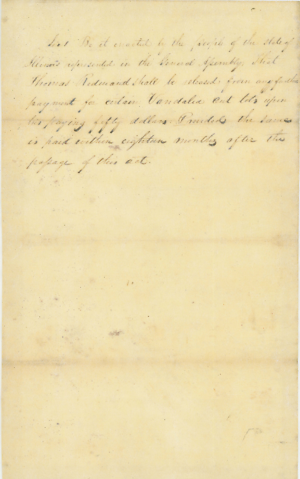 Sect. Be it enacted by the people of the State of
Illinois represented in the General Assembly, That
Thomas Redmond shall be released from any further
payment for certain Vandalia out lots upon
his paying fifty dollars Provided the same
is paid within eighteen months after the
passage of this act.